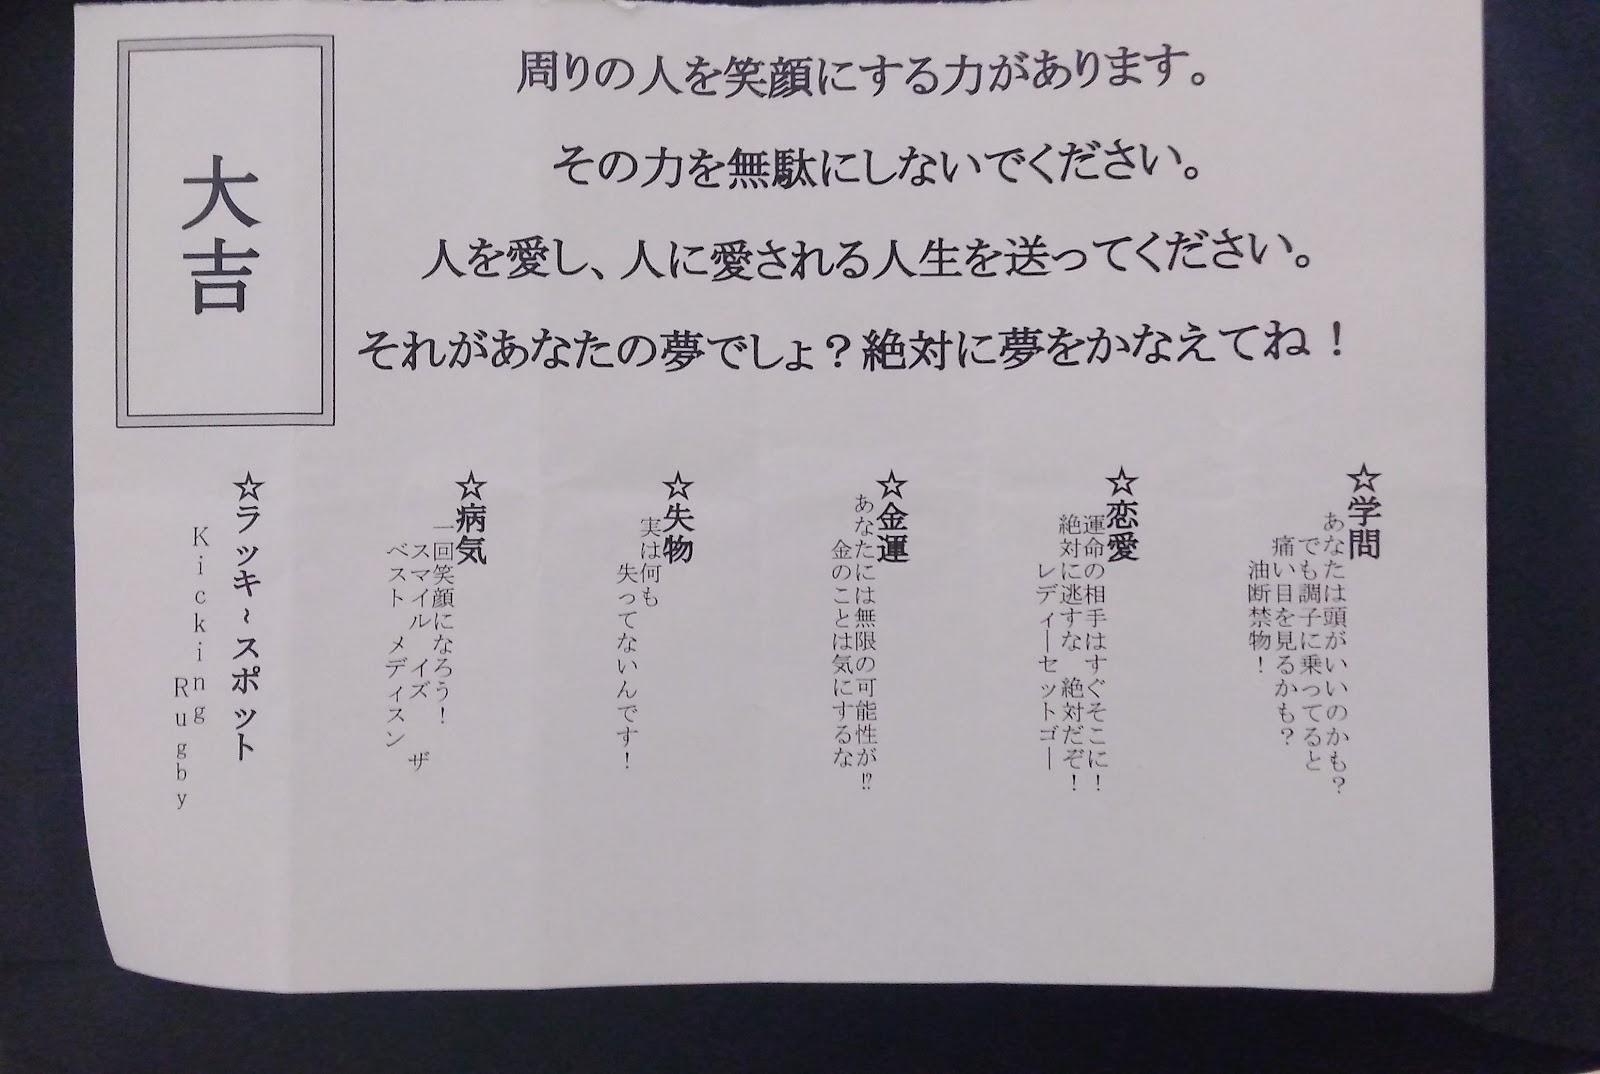 大吉
周りの人を笑顔にする力があります。
その力を無駄にしないでください。
人を愛し、人に愛される人生を送ってください。
それがあなたの夢でしょ？絶対に夢をかなえてね！
☆学問
あなたは頭がいいのかも？
でも調子に乗ってると
痛い目を見るかも？
油断禁物！
☆恋愛
運命の相手はすぐそこに！
絶対に逃すな　絶対だぞ！
レディーセットゴー
☆金運
あなたには無限の可能性が⁉
金のことは気にするな
☆失物
実は何も
失ってないんです！
☆病気
一回笑顔になろう！
スマイル　イズ　ザ
ベスト　メディスン
☆ラッキ～スポット
Kicking
Rugby